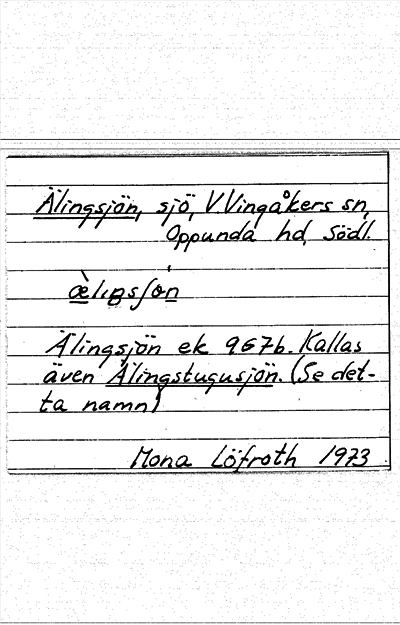 Älingsjön, sjö, V. Vingåkers sn,
Oppunda hd, Södl.
æ̀liŋsʃø̀n
Älingsjön ek 967b. Kallas
även Älingstugusjön. (Se det-
ta namn)
Mona Löfroth 1973